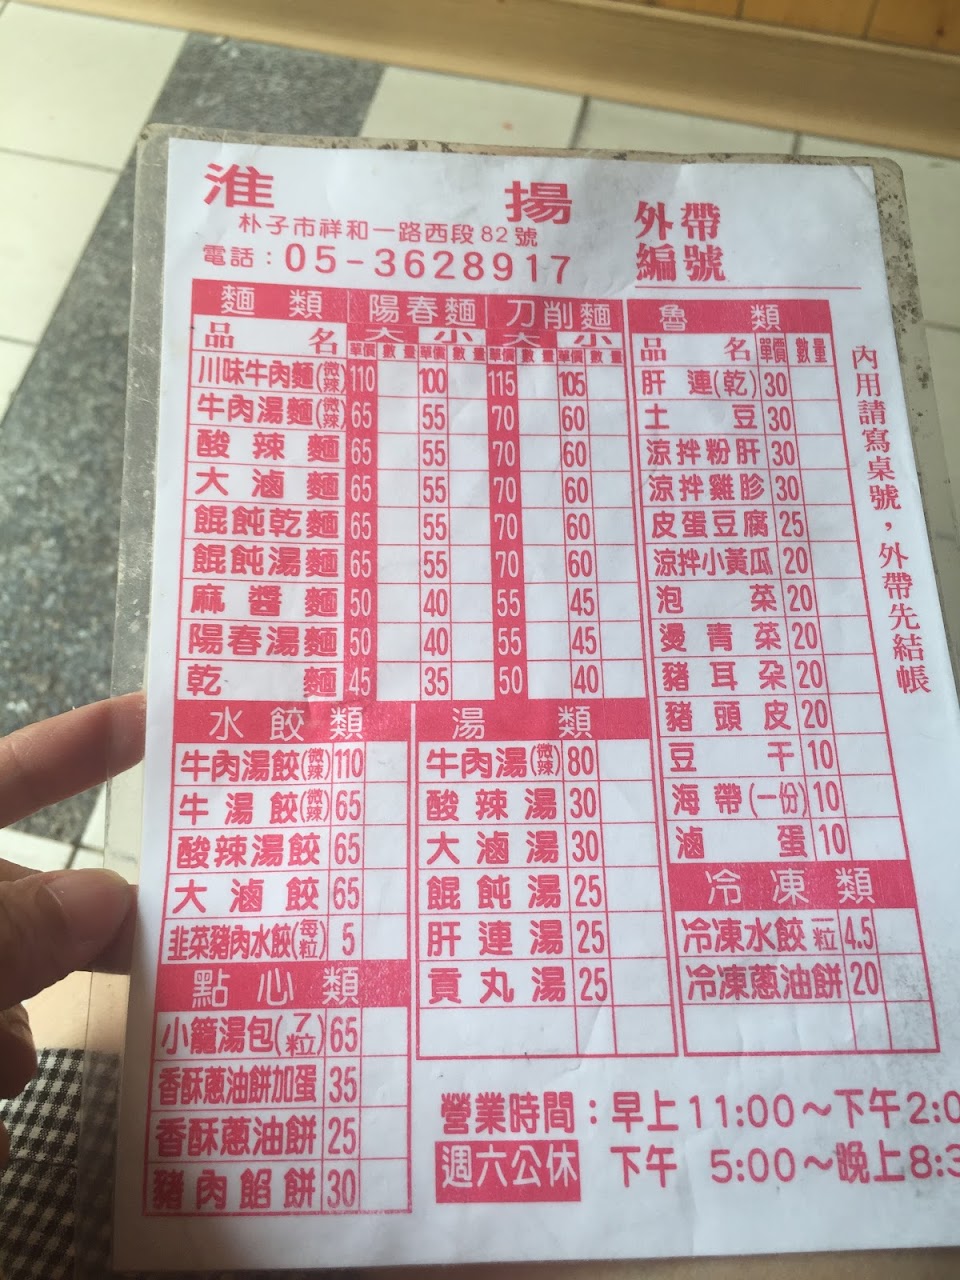 淮 揚
朴子市祥和一路西段82號
電話：05-3628917
外帶
編號
麵類 陽春麵 刀削麵
品名 大 小 大 小
單價 數量 單價 數量 單價 數量 單價 數量
川味牛肉麵(微辣) 110 100 115 105
牛肉湯麵(微辣) 65 55 70 60
酸辣麵 65 55 70 60
大滷麵 65 55 70 60
餛飩乾麵 65 55 70 60
餛飩湯麵 65 55 70 60
麻醬麵 50 40 55 45
陽春湯麵 50 40 55 45
乾麵 45 35 50 40
水餃類
牛肉湯餃(微辣) 110
牛湯餃(微辣) 65
酸辣湯餃 65
大滷餃 65
韭菜豬肉水餃(每粒) 5
點心類
小籠湯包(7粒) 65
香酥蔥油餅加蛋 35
香酥蔥油餅 25
豬肉餡餅 30
湯類
牛肉湯(微辣) 80
酸辣湯 30
大滷湯 30
餛飩湯 25
肝連湯 25
貢丸湯 25
魯類
品名 單價 數量
肝連(乾) 30
土豆 30
涼拌粉肝 30
涼拌雞胗 30
皮蛋豆腐 25
涼拌小黃瓜 20
泡菜 20
燙青菜 20
豬耳朵 20
豬頭皮 20
豆干 10
海帶(一份) 10
滷蛋 10
冷凍類
冷凍水餃一粒 4.5
冷凍蔥油餅 20
內用請寫桌號，外帶先結帳
營業時間：早上11:00～下午2:0
週六公休 下午 5:00～晚上8:3